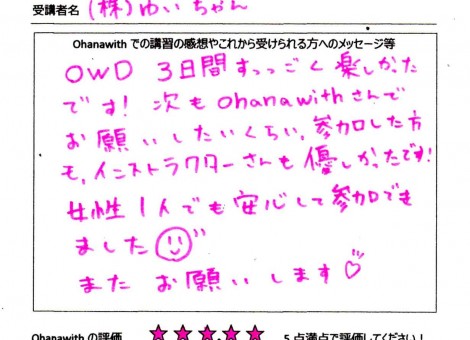 受講者名 (株)ゆいちゃん
Ohanawith での講習の感想やこれから受けられる方へのメッセージ等
OWD 3日間すっっごく楽しかった
です! 次も ohanawithさんで
お願いしたいくらい、参加した方
も、インストラクターさんも優しかったです!
女性1人でも安心して参加でき
ました
また お願いします
Ohanawith の評価 ★★★★★ 5 点満点で評価してください!